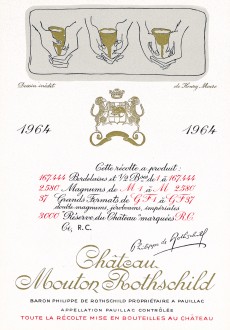 Dessin inédit de Henry Moore
1964 1964
Cette récolte a produit:
167.444 Bordelaises et 1/2 Bses de 1 à 167.444
2.580 Magnums de M 1 à M 2.580
37 Grands Formats de G F 1 à G F 37
double magnums, jéroboams, impériales
3.000 "Réserve du Château" marquées R.C.
Ci, R.C.
Philippe de Rothschild
Château
Mouton Rothschild
BARON PHILIPPE DE ROTHSCHILD PROPRIÉTAIRE A PAUILLAC
APPELLATION PAUILLAC CONTRÔLÉE
TOUTE LA RÉCOLTE MISE EN BOUTEILLES AU CHÂTEAU